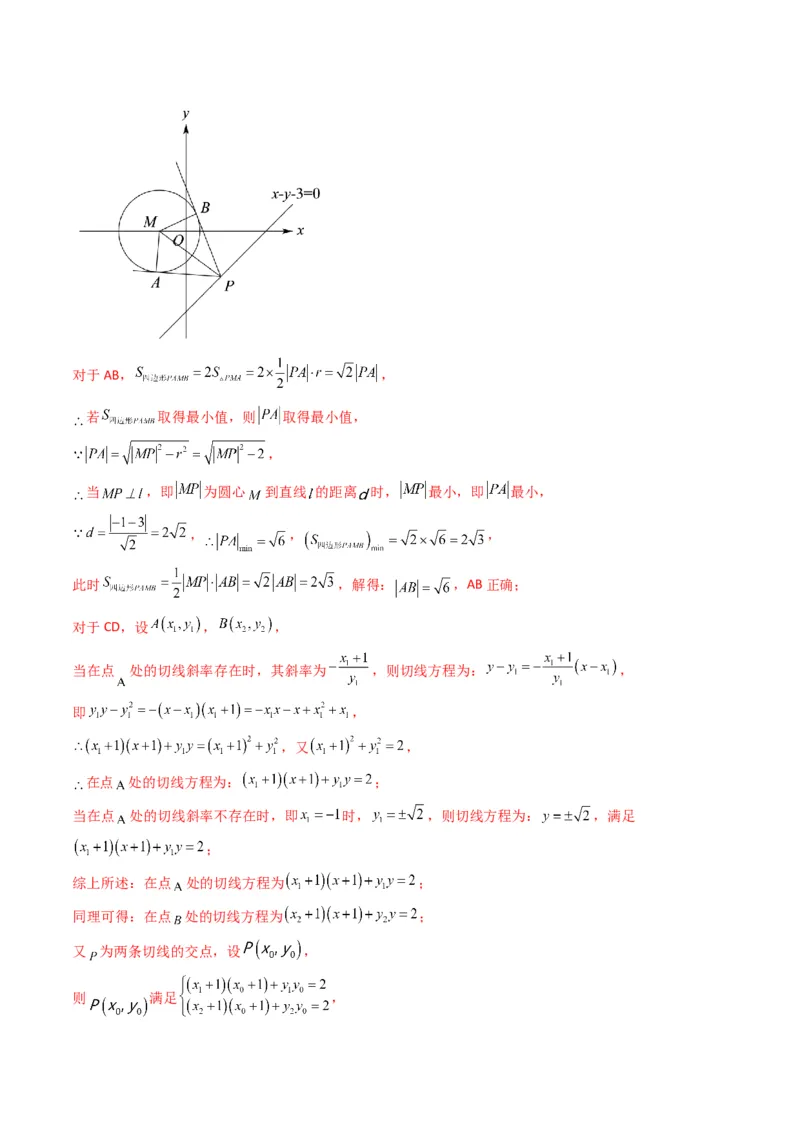 y
x-y-3=0
B
M
O
x
A
P
对于AB，S四边形PAMB = 2S△PMA = 2×1/2|PA|·r = √2|PA|，
∴若S四边形PAMB取得最小值，则|PA|取得最小值，
∵|PA| = √(|MP|²-r²) = √(|MP|²-2)，
∴当MP⊥l，即|MP|为圆心M到直线l的距离d时，|MP|最小，即|PA|最小，
∵d = |-1-3|/√2 = 2√2，∴|PA|min = √6，(S四边形PAMB)min = √2×√6 = 2√3，
此时S四边形PAMB = 1/2|MP|·|AB| = √2|AB| = 2√3，解得：|AB| = √6，AB正确；
对于CD，设A(x₁,y₁)，B(x₂,y₂)，
当在点A处的切线斜率存在时，其斜率为-(x₁+1)/y₁，则切线方程为：y-y₁=-(x₁+1)/y₁(x-x₁)，
即y₁y-y₁²=-(x-x₁)(x₁+1)=-x₁x-x+x₁²+x₁，
∴(x₁+1)(x+1)+y₁y=(x₁+1)²+y₁²，又(x₁+1)²+y₁²=2，
∴在点A处的切线方程为：(x₁+1)(x+1)+y₁y=2；
当在点A处的切线斜率不存在时，即x₁=-1时，y₁=±√2，则切线方程为：y=±√2，满足
(x₁+1)(x+1)+y₁y=2；
综上所述：在点A处的切线方程为(x₁+1)(x+1)+y₁y=2；
同理可得：在点B处的切线方程为(x₂+1)(x+1)+y₂y=2；
又P为两条切线的交点，设P(x₀,y₀)，
则P(x₀,y₀)满足{(x₁+1)(x₀+1)+y₁y₀=2
(x₂+1)(x₀+1)+y₂y₀=2，